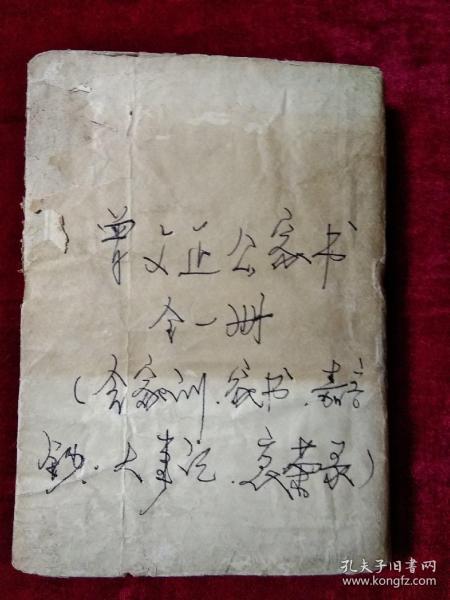 曾文正公家书
全一册
(含家训.家书.嘉言
钞.大事记.哀荣录)
孔夫子旧书网
www.kongfz.com